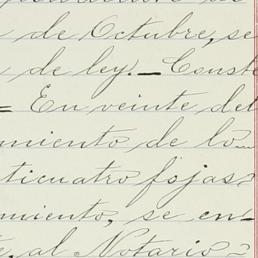 de Octubre, se
de ley. — Const
= En veinte del
miento de lo
ticuatro fojas
miento, se en-
, al Notario -